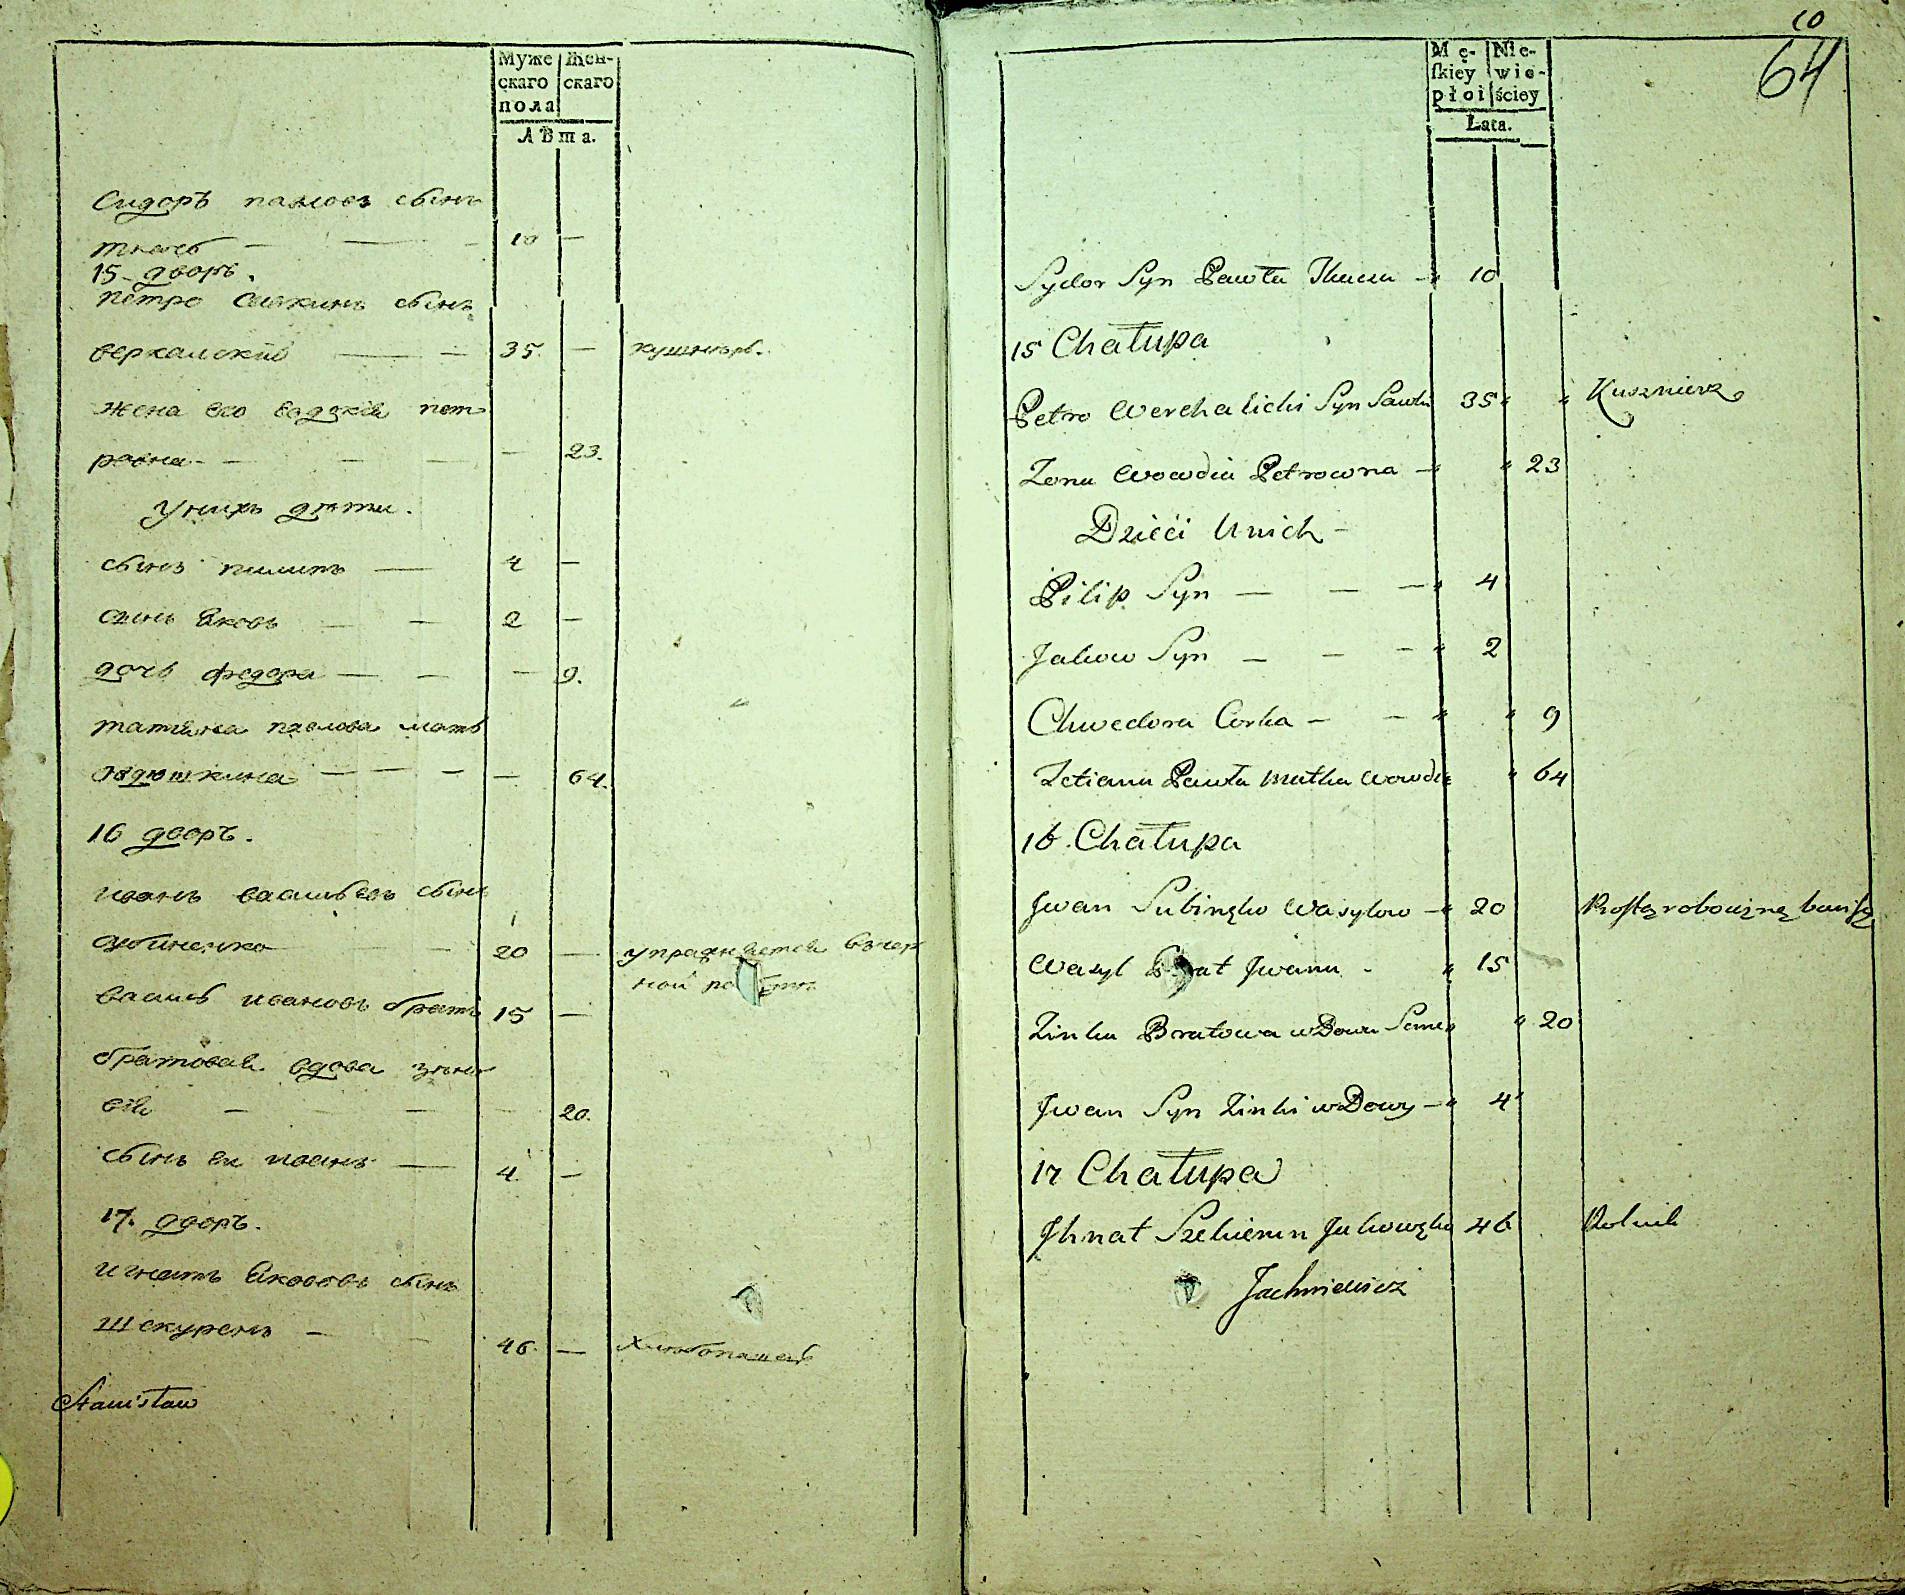 Муже Жен-
скаго скаго
пола
Лѣта.
Сидоръ павловъ сынъ
ткачъ — — - 10 —
15 дворъ.
петро савкинъ сынъ
верхалскій — — 35. — кушнѣръ.
жена его євдокія пет
ровна - — — — — 23.
у нихъ дѣти.
сынъ пилипъ — 4 —
сынъ яковъ — — 2 —
дочь федора — — — 9.
татияна павлова мать
овдюшкина — — — — 64.
16 дворъ.
иванъ васильевъ сынъ
— 20 — упражняется в чер
ной
василь ивановъ братъ 15 —
братовая вдова зѣно
вія — — 20.
сынъ ея иванъ — 4. —
17. дворъ.
игнатъ яковѣвъ сынъ
шекуренъ — 46. — хлѣбопашецъ
Stanisław
10
64
Mę- Nie-
skiey wie-
płci ściey
Lata.
Sydor Syn Pawła Tkacza — " 10
15 Chałupa
Petro Werchalicki Syn Sawki 35 " " Kusznierz
Zona Wowdia Petrowna — " " 23
Dzieći Unich -
Pilip Syn — — — " 4
Jakow Syn — — - " 2
Chwedora Corka — — " " 9
Tetiana Pawła matka Wowdi " " 64
16. Chałupa
Jwan Wasylow — " 20 Prostą robocizną bawi się
Wasyl Brat Jwana - " 15
Zinka Bratowa wDowa " " 20
Jwan Syn Zinki wDowy — " 4
17 Chałupa
Jhnat Szekieren 46 Rolnik
Jachniewicz